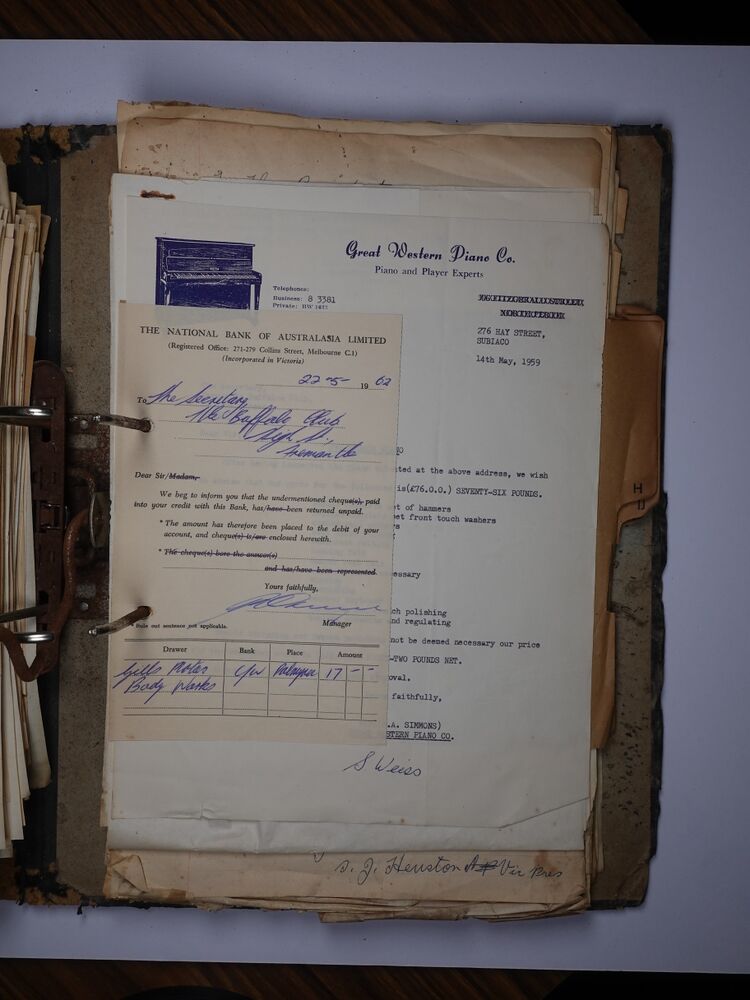 Great Western Piano Co.
Piano and Player Experts
Telephones:
Business: 8 3381
Private: BW 1423
276 HAY STREET,
SUBIACO
14th May, 1959
THE NATIONAL BANK OF AUSTRALASIA LIMITED
(Registered Office: 271-279 Collins Street, Melbourne C.1)
(Incorporated in Victoria)
22-5- 1962
To The Secretary
The Buffalo Club
High St,
Fremantle
Dear Sir/Madam,
We beg to inform you that the undermentioned cheque(s), paid
into your credit with this Bank, has/have been returned unpaid.
* The amount has therefore been placed to the debit of your
account, and cheque(s) is/are enclosed herewith.
* The cheque(s) bore the answer(s)
and has/have been represented.
Yours faithfully,
* Rule out sentence not applicable.
Manager
Drawer Bank Place Amount
Motor Palmyra 17 - -
Body Works
cted at the above address, we wish
is(£76.0.0.) SEVENTY-SIX POUNDS.
et of hammers
et front touch washers
essary
ch polishing
nd regulating
not be deemed necessary our price
-TWO POUNDS NET.
oval.
faithfully,
.A. SIMMONS)
STERN PIANO CO.
S Weiss
S. J. Heuston Vic Pres